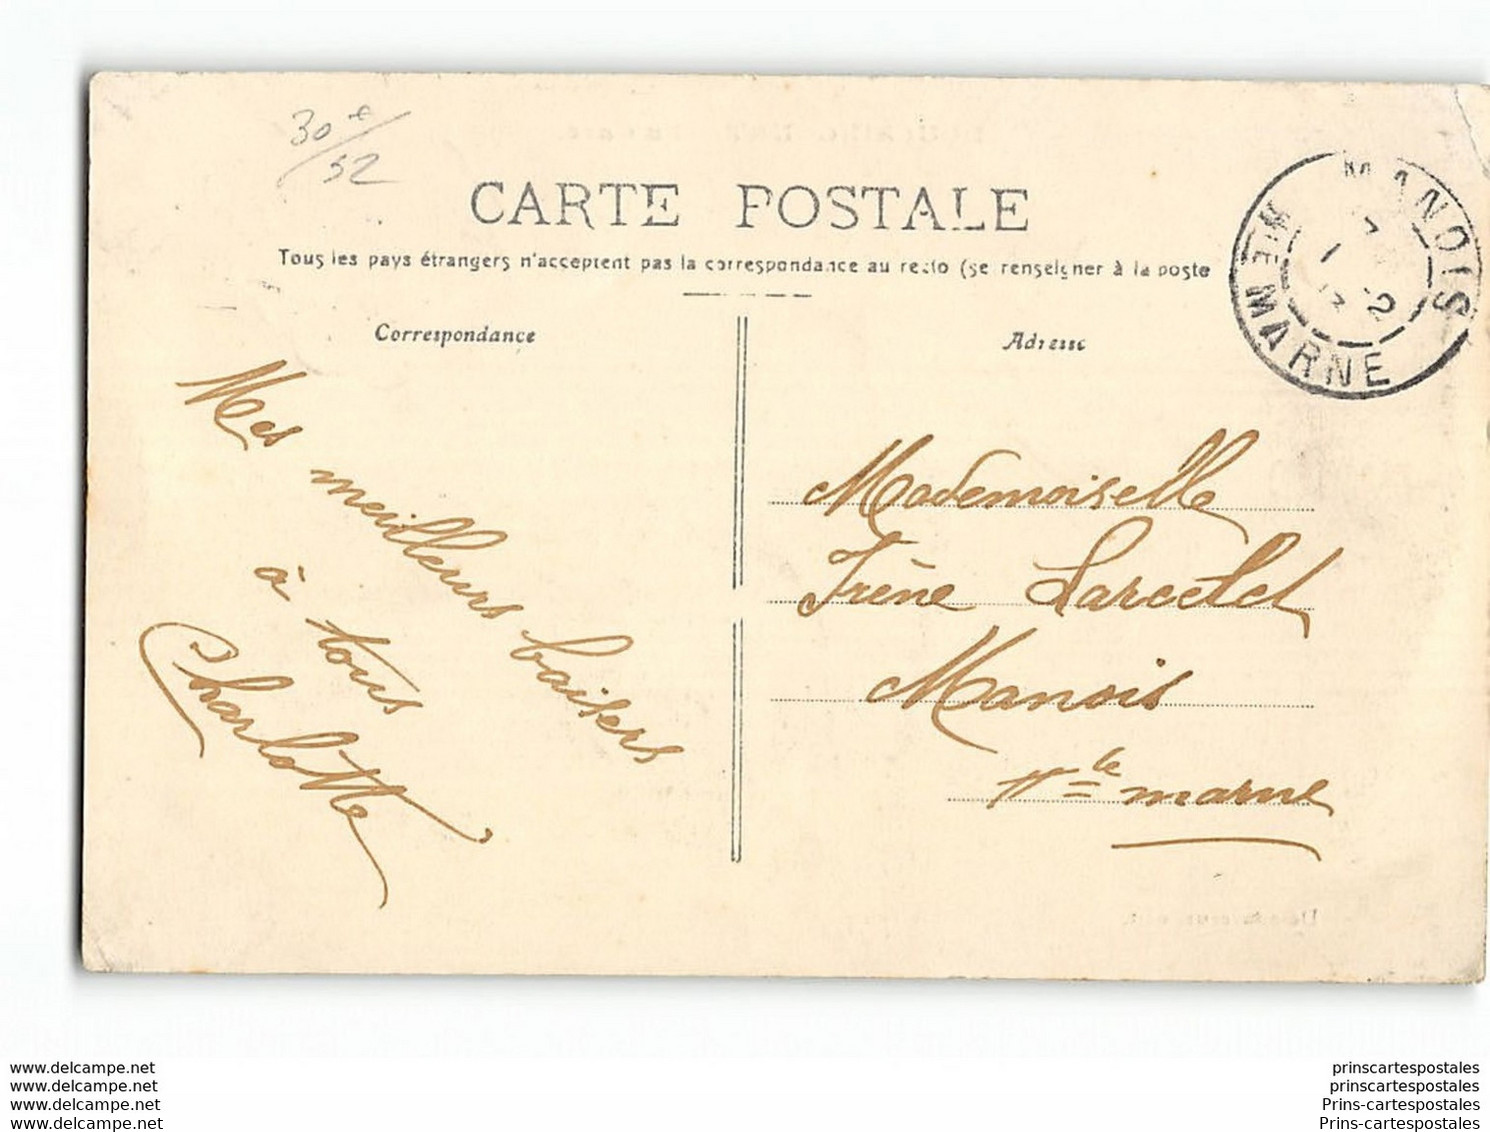 30 €/52
CARTE POSTALE
Tous les pays étrangers n'acceptent pas la correspondance au recto (se renseigner à la poste
Correspondance
Adresse
MANOIS
Hte MARNE
Mes meilleurs baisers
à tous
Charlotte
Mademoiselle
Irène
Manois
Hte marne
www.delcampe.net
www.delcampe.net
www.delcampe.net
www.delcampe.net
prinscartespostales
prinscartespostales
Prins-cartespostales
Prins-cartespostales